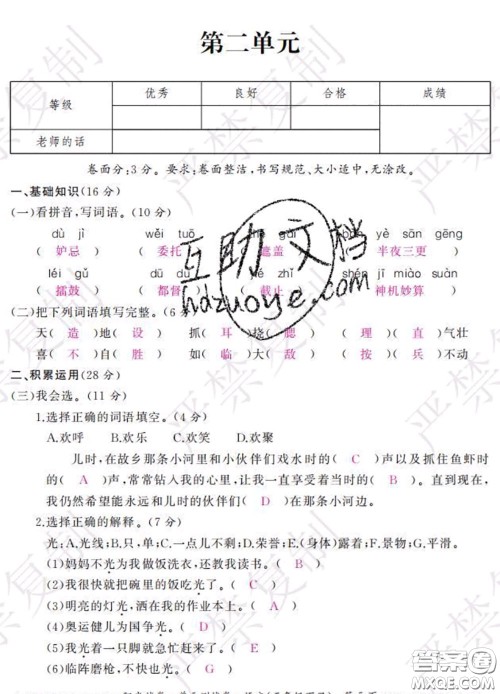 第二单元
等级 优秀 良好 合格 成绩
老师的话
卷面分:3分。要求:卷面整洁,书写规范、大小适中,无涂改。
一、基础知识(16分)
(一)看拼音,写词语。(10分)
dù jì wěi tuō gài bàn yè sān gēng
(妒忌) (委托) (遮盖) (半夜三更)
léi gǔ dū du jié zhǐ shén jī miào suàn
(擂鼓) (都督) (截止) (神机妙算)
(二)把下列词语填写完整。(6分)
天(造)地(设) 抓(耳)挠(腮) (理)(直)气壮
喜(不)自(胜) 如(临)大(敌) (按)(兵)不动
二、积累运用(28分)
(三)我会选。(11分)
1.选择正确的词语填空。(4分)
A.欢呼 B.欢乐 C.欢笑 D.欢聚
儿时,在故乡那条小河里和小伙伴们戏水时的(C)声以及抓住鱼虾时
的(A)声,常常钻入我的心里,让我一直享受着(B)。直到现在,
我仍然希望能永远和儿时的伙伴们(D)在那条小河边。
2.选择正确的解释。(7分)
光:A.光线;B.只,单;C.一点儿不剩;D.荣誉;E.(身体)露着;F.景物;G.平滑。
(1)妈妈不光为我做饭洗衣,还教我读书。(B)
(2)我很快就把碗里的饭吃光了。(C)
(3)明亮的灯光,洒在我的作业本上。(A)
(4)奥运健儿为国争光。(D)
(5)我光着一只脚就急忙赶来了。(E)
(6)临阵磨枪,不快也光。(G)
严禁复制
互助文档
hdzuoye.com